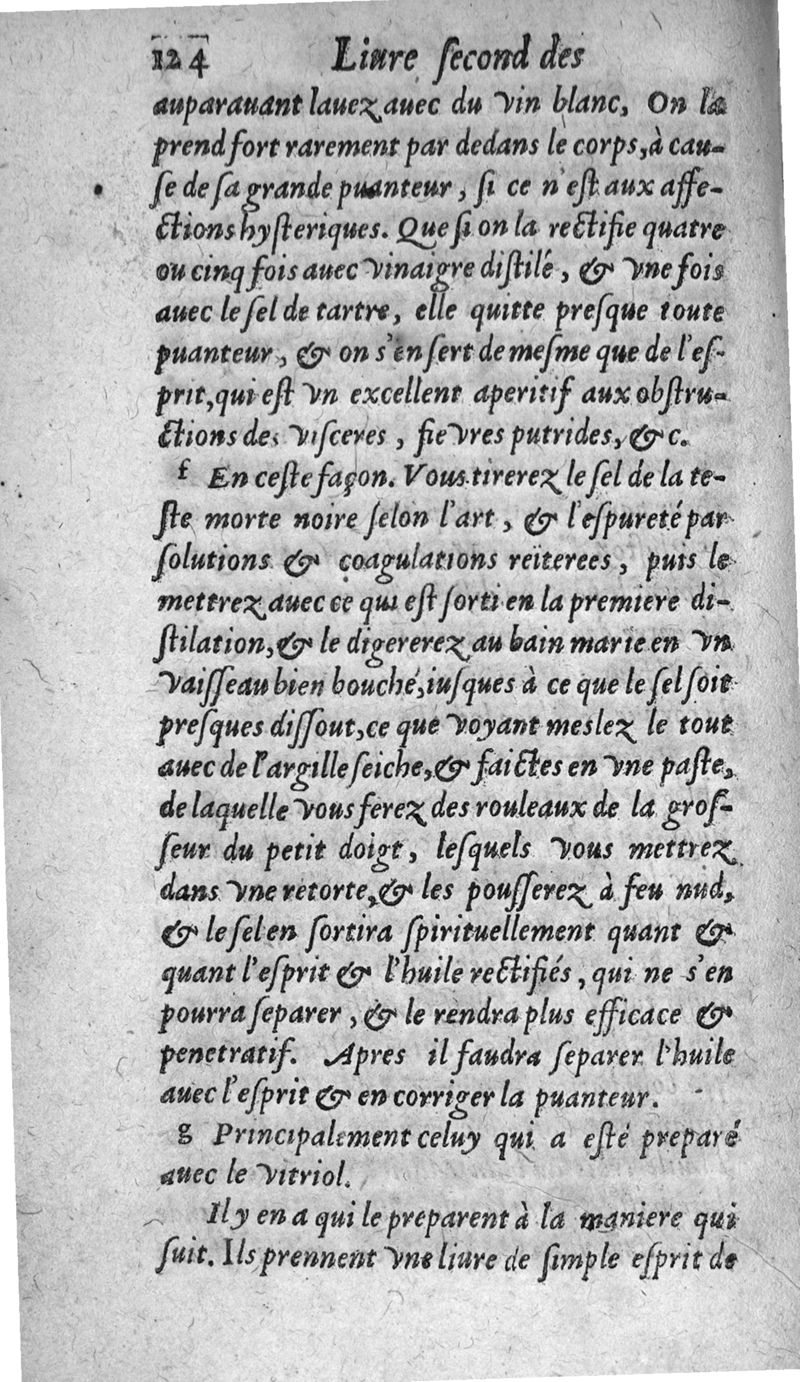 124 Liure ſecond des
auparauant lauez auec du vin blanc, On la
prend fort rarement par dedans le corps, à cau-
ſe de ſa grande puanteur, ſi ce n'eſt aux affe-
ctions hyſteriques. Que ſi on la rectifie quatre
ou cinq fois auec vinaigre diſtilé, & vne fois
auec le ſel de tartre, elle quitte preſque toute
puanteur, & on s'en ſert de meſme que de l'eſ-
prit, qui eſt vn excellent aperitif aux obſtru-
ctions des viſceres, fievres putrides, &c.
f En ceſte façon. Vous tirerez le ſel de la te-
ſte morte noire ſelon l'art, & l'eſpureté par
ſolutions & coagulations reïterees, puis le
mettrez auec ce qui eſt ſorti en la premiere di-
ſtilation, & le digererez au bain marie en vn
vaiſſeau bien bouché, iuſques à ce que le ſel ſoit
preſques diſſout, ce que voyant meslez le tout
auec de l'argille ſeiche, & faictes en vne paſte,
de laquelle vous ferez des rouleaux de la groſ-
ſeur du petit doigt, leſquels vous mettrez
dans vne retorte, & les pouſſerez à feu nud,
& le ſel en ſortira ſpirituellement quant &
quant l'eſprit & l'huile rectifiés, qui ne s'en
pourra ſeparer, & le rendra plus efficace &
penetratif. Apres il faudra ſeparer l'huile
auec l'eſprit & en corriger la puanteur.
g Principalement celuy qui a eſté preparé
auec le vitriol.
Il y en a qui le preparent à la maniere qui
ſuit. Ils prennent vne liure de ſimple eſprit de